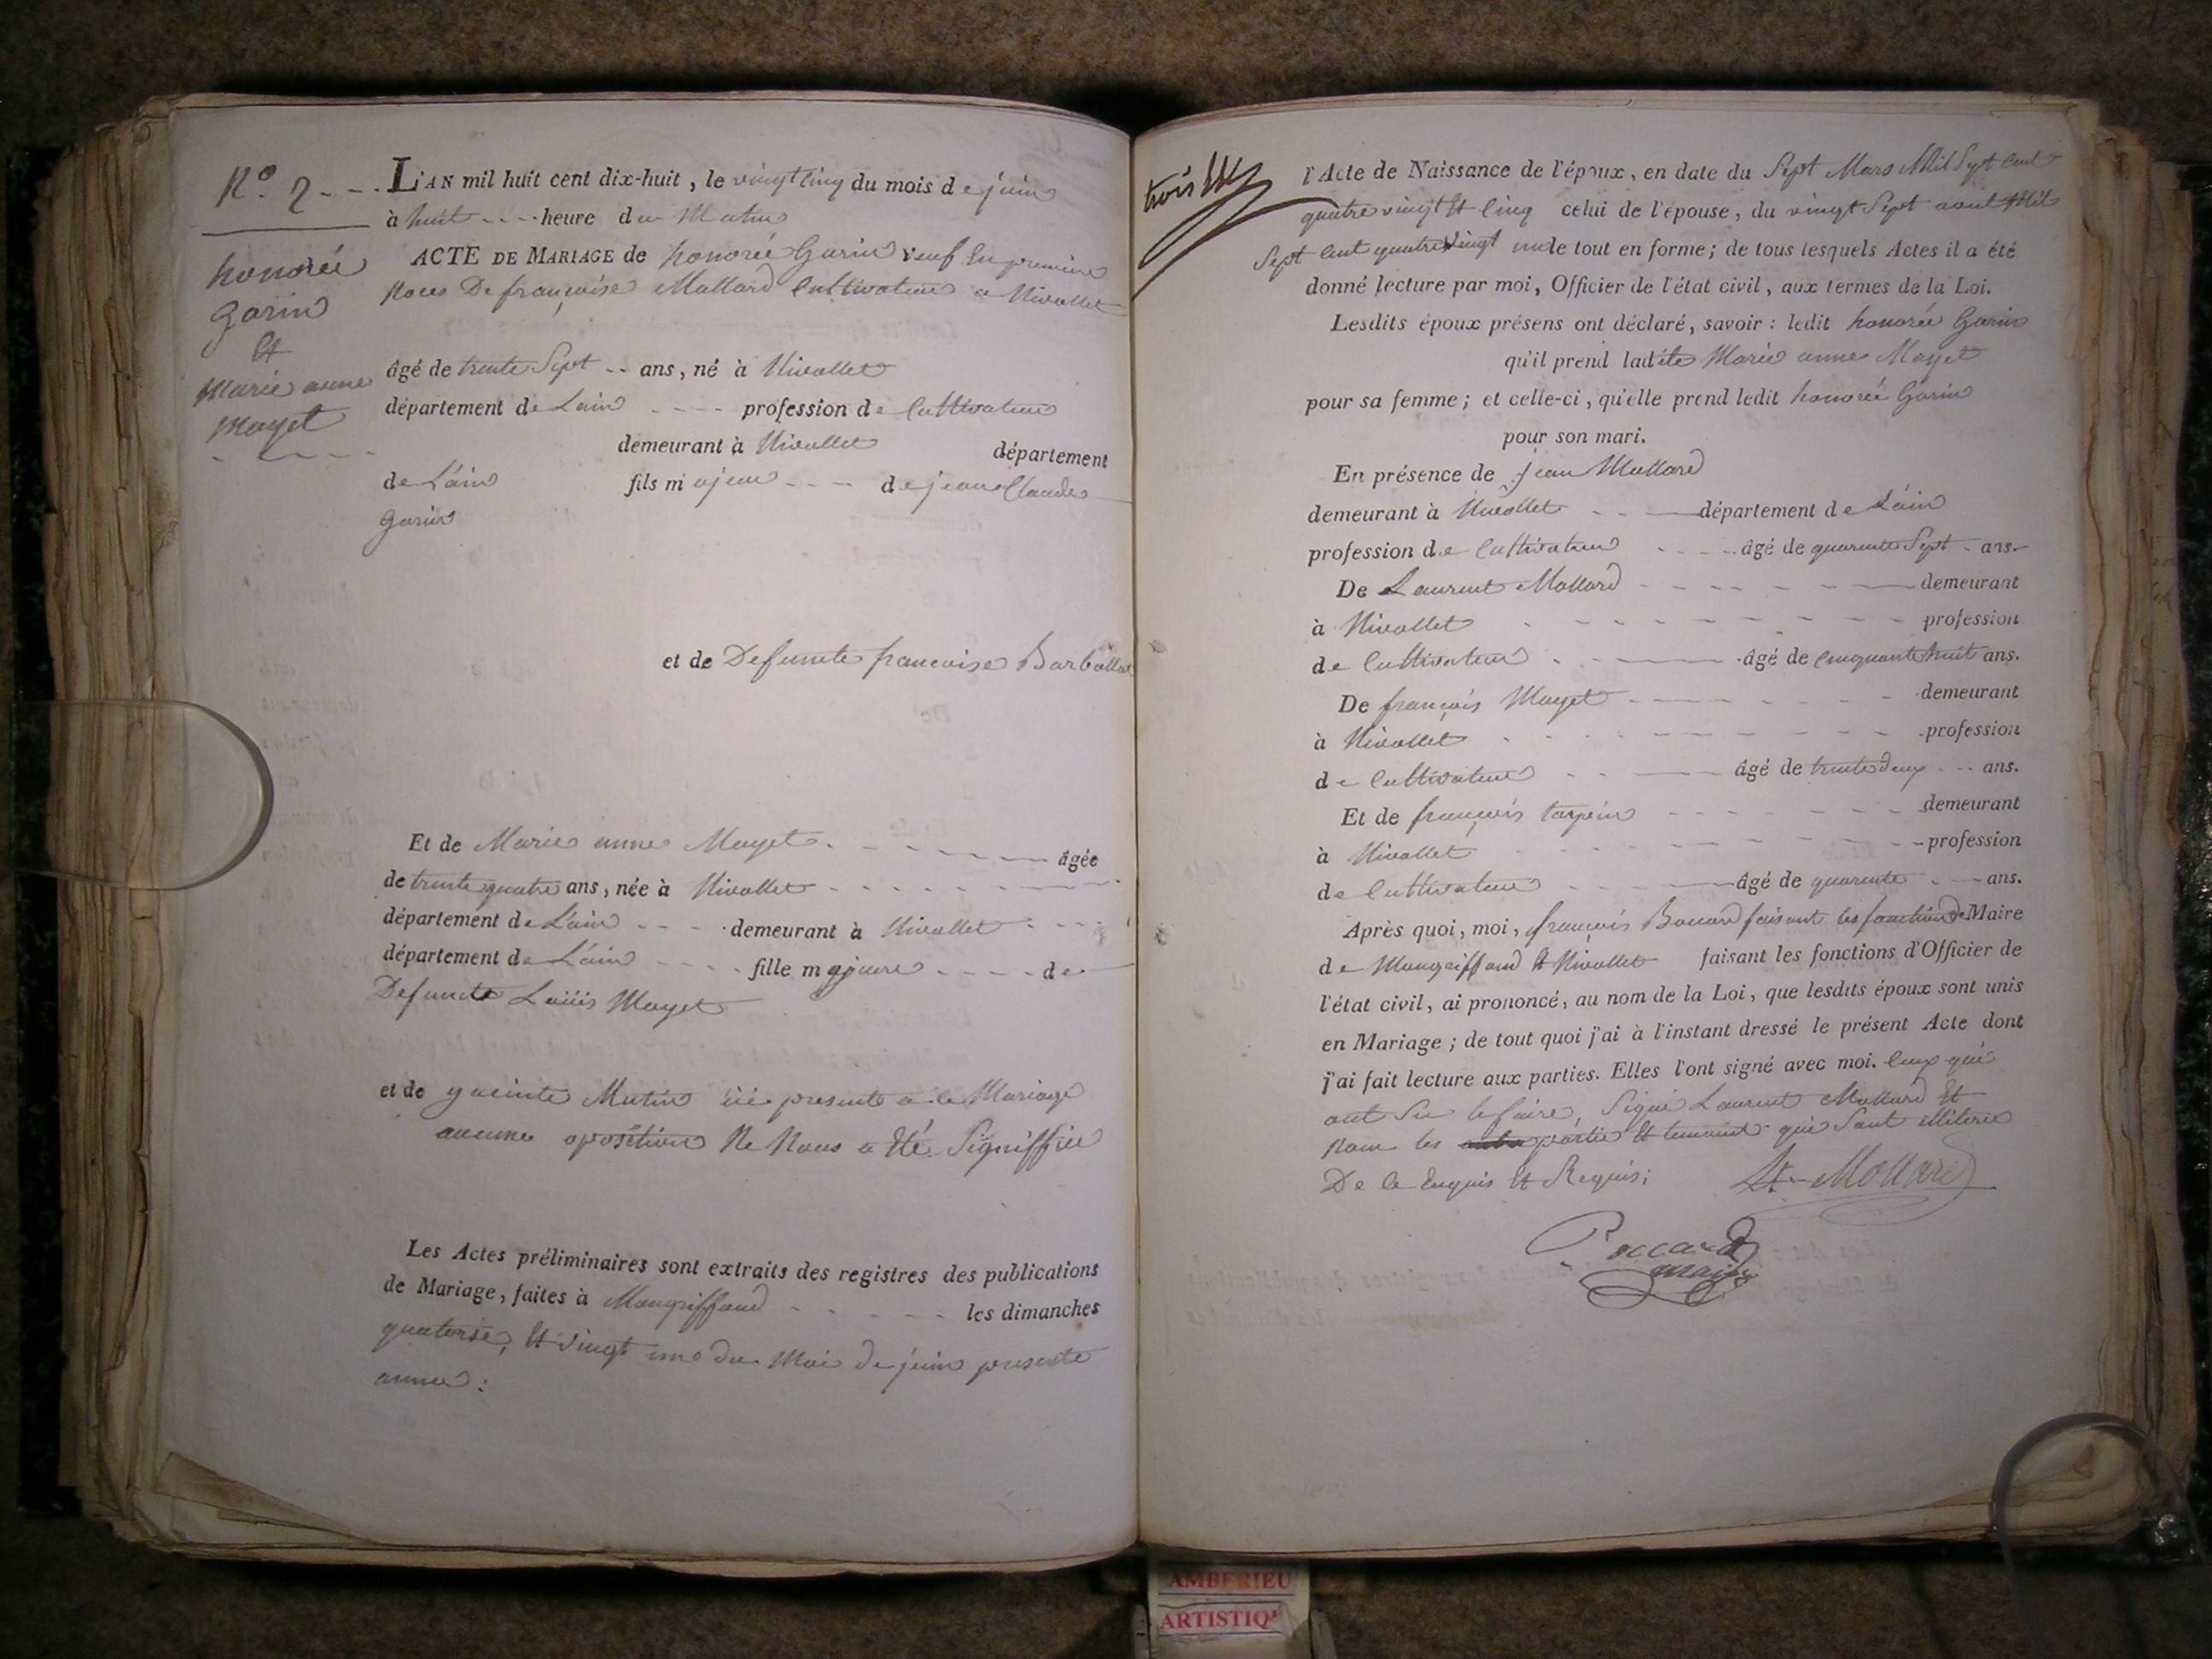 N.o 2
honorée
Garin
Et
Marie anne
Mayet
L'AN mil huit cent dix-huit, le vingt Cinq du mois de juin
à huit heure du Matin
ACTE DE MARIAGE de honorée Garin veuf En premiere
Noces De françoise Mollard Cultivateur a Nivollet
âgé de trente Sept ans, né à Nivollet
département de Lain profession de Cultivateur
demeurant à Nivollet département
de L'ain fils majeur de jean Claude
Garin
et de Defuncte francoise Barbollat
Et de Marie anne Mayet âgée
de trente quatre ans, née à Nivollet
département de L'ain demeurant à Nivollet
département de L'ain fille majeure de
Defuncte Loüis Mayet
et de Mutin presente a le Mariage
aucune oposition Ne Nous a Eté Signiffiée
Les Actes préliminaires sont extraits des registres des publications
de Mariage, faites à Mongriffond les dimanches
quatorse, Et vingt une du Mois de juin presente
année:
trois
l'Acte de Naissance de l'époux, en date du Sept Mars Mil Sept Cent
quatre vingt Et Cinq celui de l'épouse, du vingt Sept aout Mil
Sept Cent quatre Vingt le tout en forme; de tous lesquels Actes il a été
donné lecture par moi, Officier de l'état civil, aux termes de la Loi.
Lesdits époux présens ont déclaré, savoir: ledit honorée Garin
qu'il prend ladite Marie anne Mayet
pour sa femme; et celle-ci, qu'elle prend ledit honorée Garin
pour son mari.
En présence de jean Mollard
demeurant à Nivollet département de L'ain
profession de Cultivateur âgé de quarente Sept ans.
De Laurent Mollard demeurant
à Nivollet profession
de Cultivateur âgé de Cinquante huit ans.
De françois Mayet demeurant
à Nivollet profession
de Cultivateur âgé de trente deux ans.
Et de françois tarpin demeurant
à Nivollet profession
de Cultivateur âgé de quarente ans.
Après quoi, moi, françois faisant les fonction De Maire
de Mongriffond Et Nivollet faisant les fonctions d'Officier de
l'état civil, ai prononcé, au nom de la Loi, que lesdits époux sont unis
en Mariage; de tout quoi j'ai à l'instant dressé le présent Acte dont
j'ai fait lecture aux parties. Elles l'ont signé avec moi. Ceux qui
ont Su le faire, Signé Laurent Mollard Et
Non les partie Et temoint qui Sont Miterée
De le Enquis Et Requis;
Lt Mollard
maire
AMBERIEU
ARTISTIQ